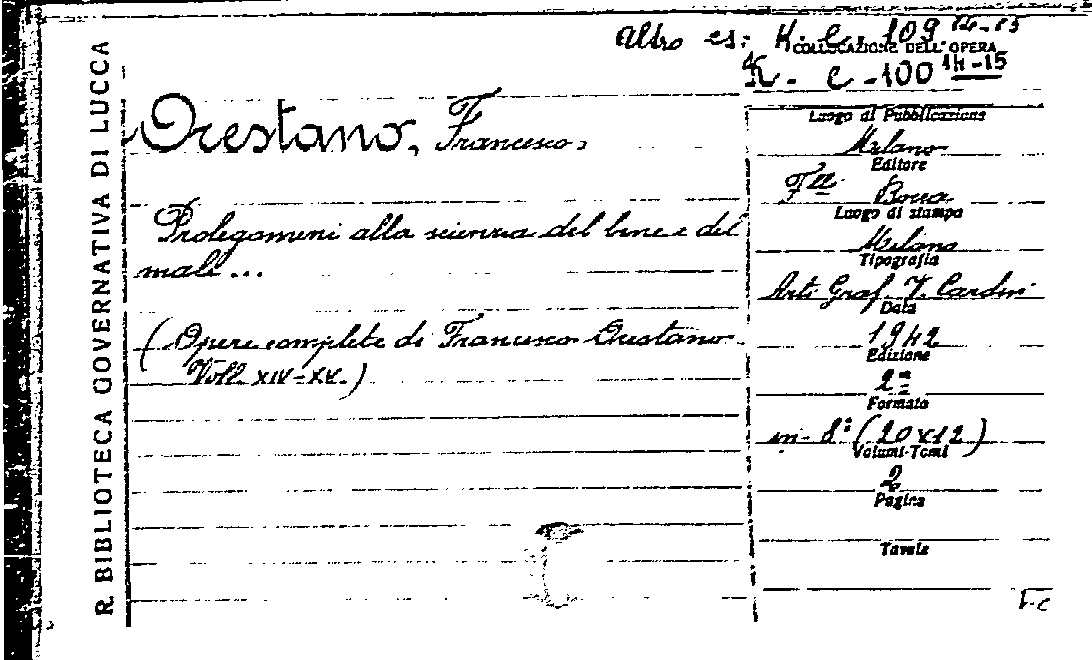 Altro es: K. C. 109 14-15
COLLOCAZIONE DELL'OPERA
K - C - 100 14-15
R. BIBLIOTECA GOVERNATIVA DI LUCCA
Orestano, Francesco.
Prolegomeni alla scienza del bene e del
male...
(Opere complete di Francesco Orestano.
Voll. XIV-XV.)
Luogo di Pubblicazione
Milano
Editore
F.lli Bocca
Luogo di stampa
Milano
Tipografia
Arti Graf. F. Cardin
Data
1942
Edizione
2ª
Formato
in-8° (20x12)
Volumi-Tomi
2
Pagine
Tavole